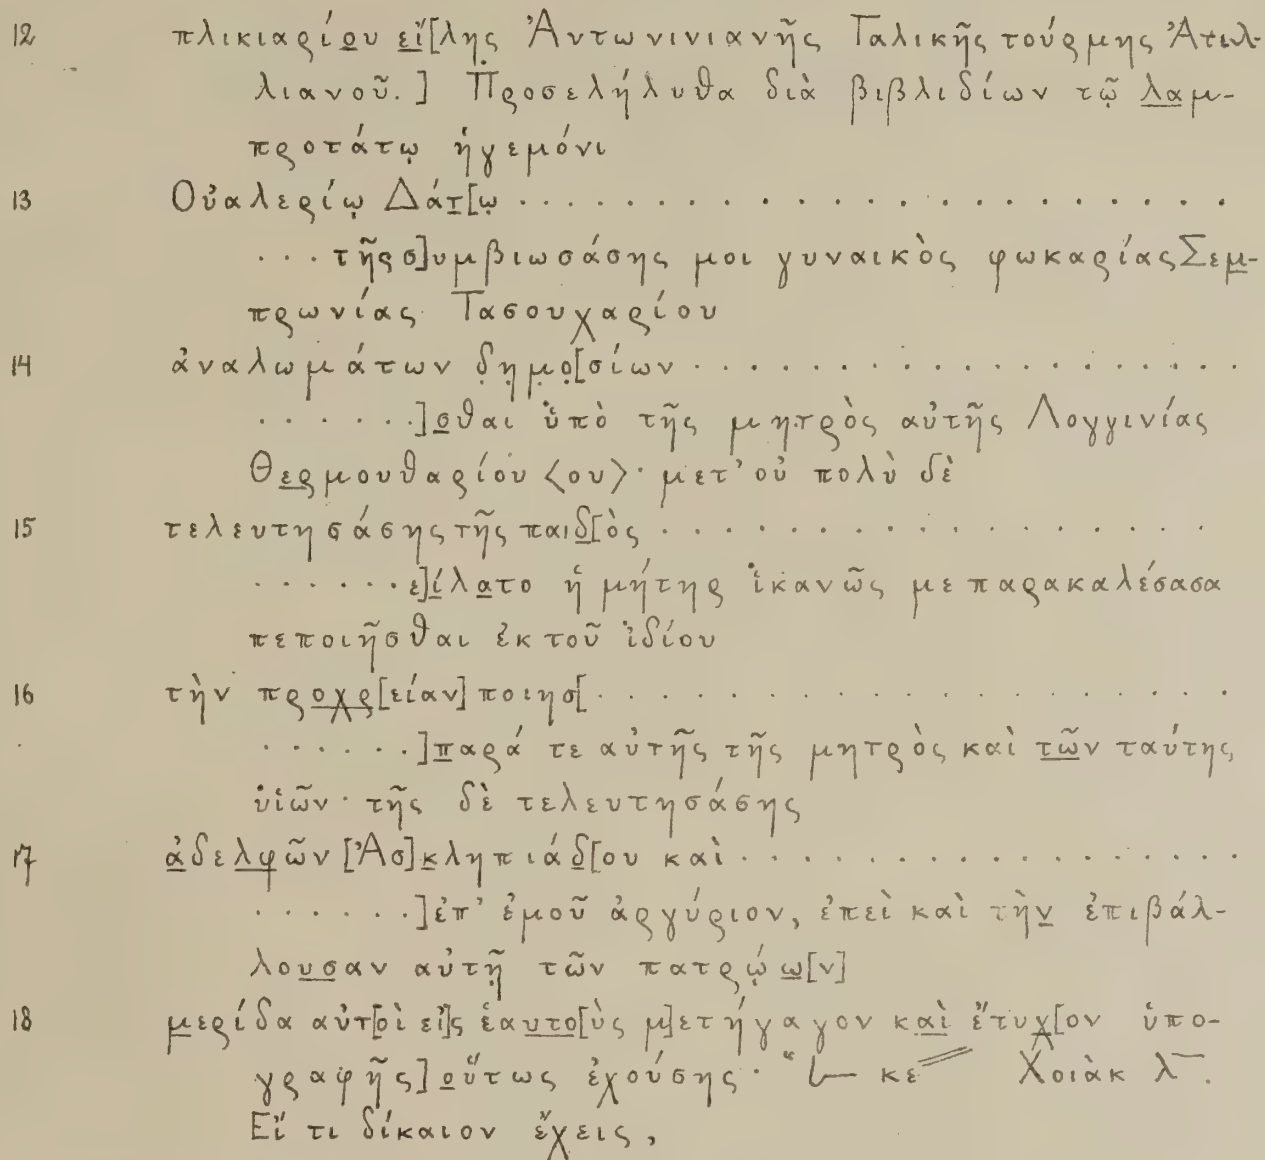 12 πλικιαρίου εἴ[λης Ἀντωνινιανῆς Γαλικῆς τούρμης Ἀτιλ-
λιανοῦ.] Προσελήλυθα διὰ βιβλιδίων τῷ λαμ-
προτάτῳ ἡγεμόνι
13 Οὐαλερίῳ Δάτ[ῳ . . . . . . . . . . . . . . . . . . . . . . . .
. . . τῆς σ]υμβιωσάσης μοι γυναικὸς φωκαρίας Σεμ-
πρωνίας Τασουχαρίου
14 ἀναλωμάτων δημο[σίων . . . . . . . . . . . . . . . . . .
. . . . . .]σθαι ὑπὸ τῆς μητρὸς αὐτῆς Λογγινίας
Θερμουθαρίου <ου>· μετ' οὐ πολὺ δὲ
15 τελευτησάσης τῆς παιδ[ὸς . . . . . . . . . . . . . . . . . .
. . . . . . ε]ἵλατο ἡ μήτηρ ἱκανῶς με παρακαλέσασα
πεποιῆσθαι ἐκ τοῦ ἰδίου
16 τὴν προχρ[είαν] ποιησ[. . . . . . . . . . . . . . . . . . . .
. . . . . .]παρά τε αὐτῆς τῆς μητρὸς καὶ τῶν ταύτης
υἱῶν· τῆς δὲ τελευτησάσης
17 ἀδελφῶν [Ἀσ]κληπιάδ[ου καὶ . . . . . . . . . . . . . . . .
. . . . . .]ἐπ' ἐμοῦ ἀργύριον, ἐπεὶ καὶ τὴν ἐπιβάλ-
λουσαν αὐτῇ τῶν πατρῴω[ν]
18 μερίδα αὐτ[οὶ εἰ]ς ἑαυτο[ὺς μ]ετήγαγον καὶ ἔτυχ[ον ὑπο-
γραφῆς] οὕτως ἐχούσης· "L κε Χοιὰκ λ.
Εἴ τι δίκαιον ἔχεις,